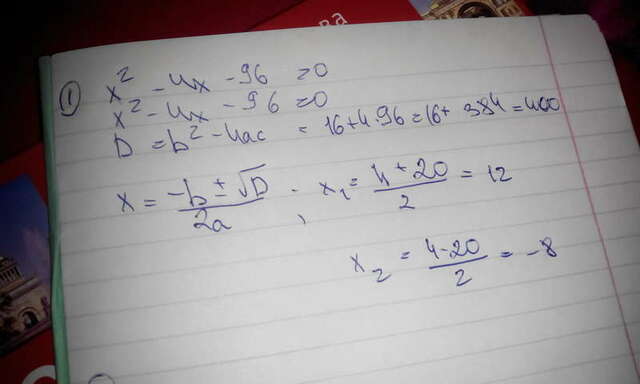 ва
1 x² - 4x - 96 = 0
x² - 4x - 96 = 0
D = b² - 4ac = 16 + 4·96 = 16 + 384 = 400
x = (-b ± √D) / 2a ; x₁ = (4 + 20) / 2 = 12
x₂ = (4 - 20) / 2 = -8